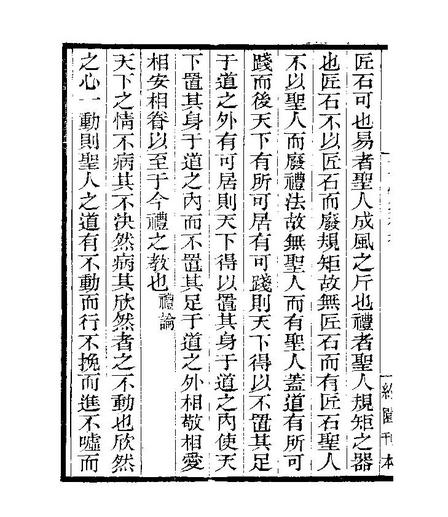 匠石可也易者聖人成風之斤也禮者聖人規矩之器
也匠石不以匠石而廢規矩故無匠石而有匠石聖人
不以聖人而廢禮法故無聖人而有聖人蓋道有所可
踐而後天下有所可居有可踐則天下得以不置其足
于道之外有可居則天下得以置其身于道之內使天
下置其身于道之內而不置其足于道之外相敬相愛
相安相眷以至于今禮之教也禮論
天下之情不病其不決然病其欣然者之不動也欣然
之心一動則聖人之道有不動而行不挽而進不噓而
刊本